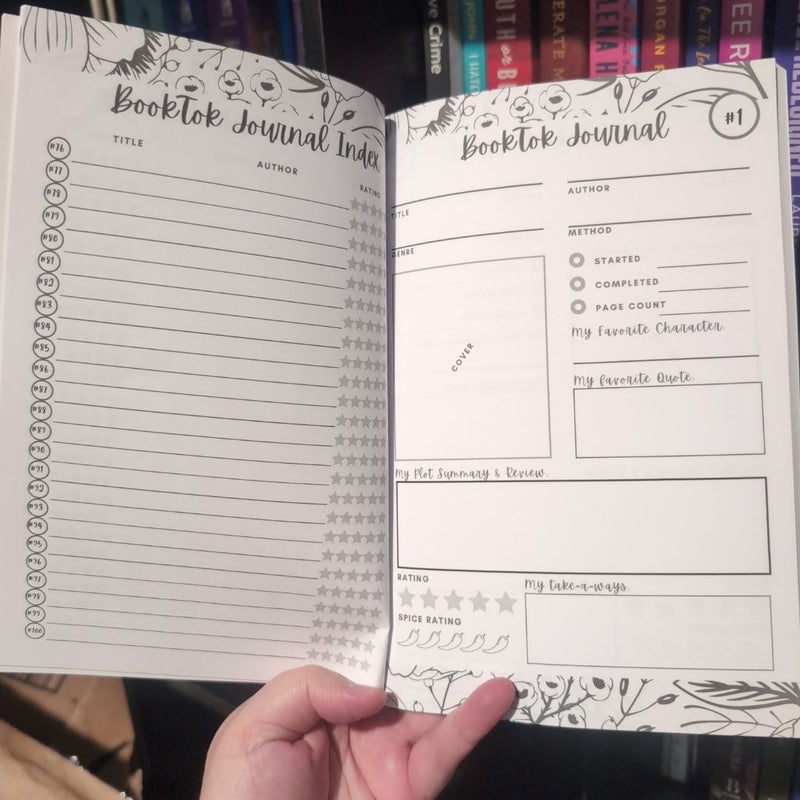 BookTok Journal Index
TITLE
AUTHOR
RATING
#76
#77
#78
#79
#80
#81
#82
#83
#84
#85
#86
#87
#88
#89
#90
#91
#92
#93
#94
#95
#96
#97
#98
#99
#100
BookTok Journal
#1
TITLE
AUTHOR
GENRE
METHOD
COVER
STARTED
COMPLETED
PAGE COUNT
My Favorite Character:
My Favorite Quote:
My Plot Summary & Review:
RATING
SPICE RATING
My take-a-ways:
Crime
JOHN
In The